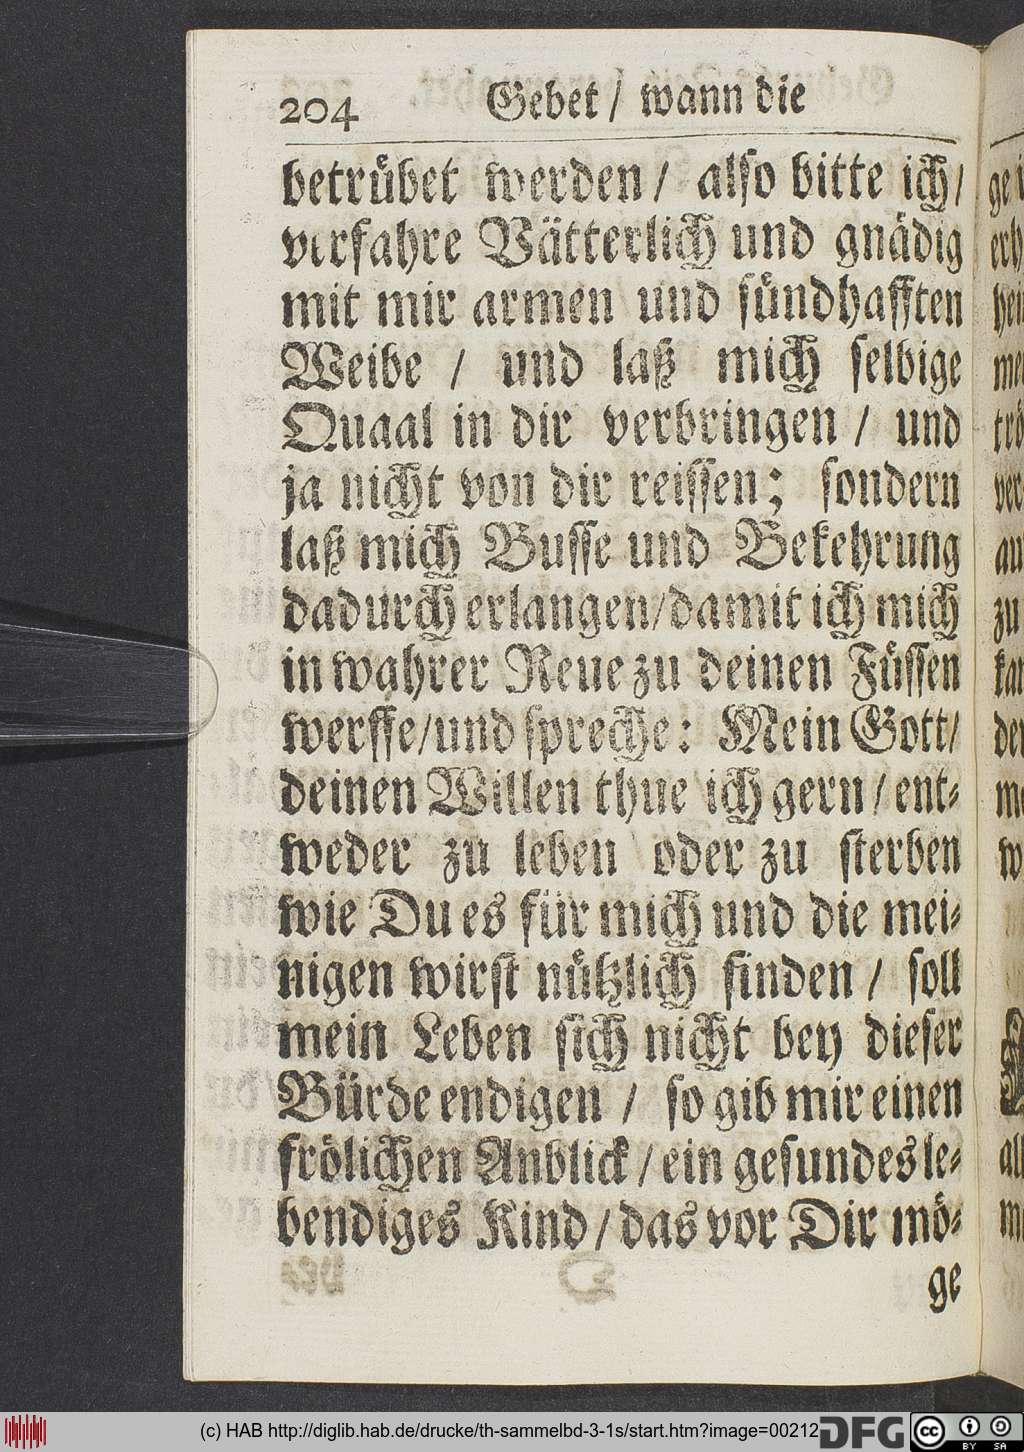 204 Gebet / wann die
betrübet werden / also bitte ich /
verfahre Vätterlich und gnädig
mit mir armen und sündhafften
Weibe / und laß mich selbige
Quaal in dir verbringen / und
ja nicht von dir reissen; sondern
laß mich Busse und Bekehrung
dadurch erlangen / damit ich mich
in wahrer Reue zu deinen Füssen
werffe / und spreche: Mein Gott /
deinen Willen thue ich gern / ent-
weder zu leben oder zu sterben
wie Du es für mich und die mei-
nigen wirst nützlich finden / soll
mein Leben sich nicht bey dieser
Bürde endigen / so gib mir einen
frölichen Anblick / ein gesundes le-
bendiges Kind / das vor Dir mö-
ge
ge
erh
hei
me
trö
ver
au
zu
kan
der
me
w
all
me
(c) HAB http://diglib.hab.de/drucke/th-sammelbd-3-1s/start.htm?image=00212
DFG
cc
BY SA